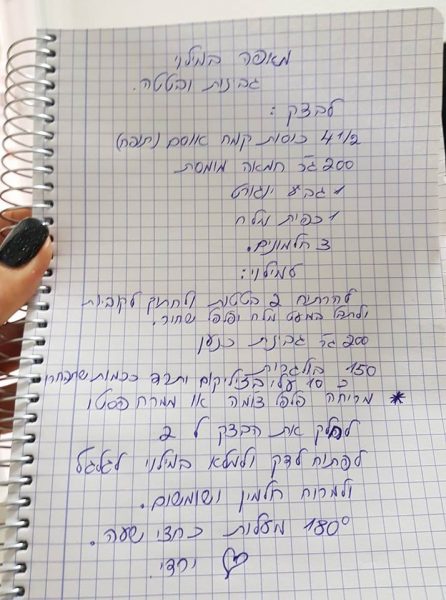 מאפה במילוי
גבינות ובטטה.
לבצק:
4 1/2 כוסות קמח אוסם (תופח)
200 גר' חמאה מומסת
1 גביע יוגורט
1 כפית מלח
3 חלמונים.
למילוי:
להרתיח 2 בטטות ולחתוך לקוביות
ולתבל במעט מלח ופלפל שחור.
200 גר' גבינת כנען
150 בולגרית
כ 10 עלי בזיליקום ותרד ככמות שתבחרו
* מריחה פלפל צומה או ממרח פסטו
לחלק את הבצק ל 2
לפתוח לדק ולמלא במילוי לגלגל
ולמרוח חלמון ושומשום.
180° מעלות כחצי שעה.
♡